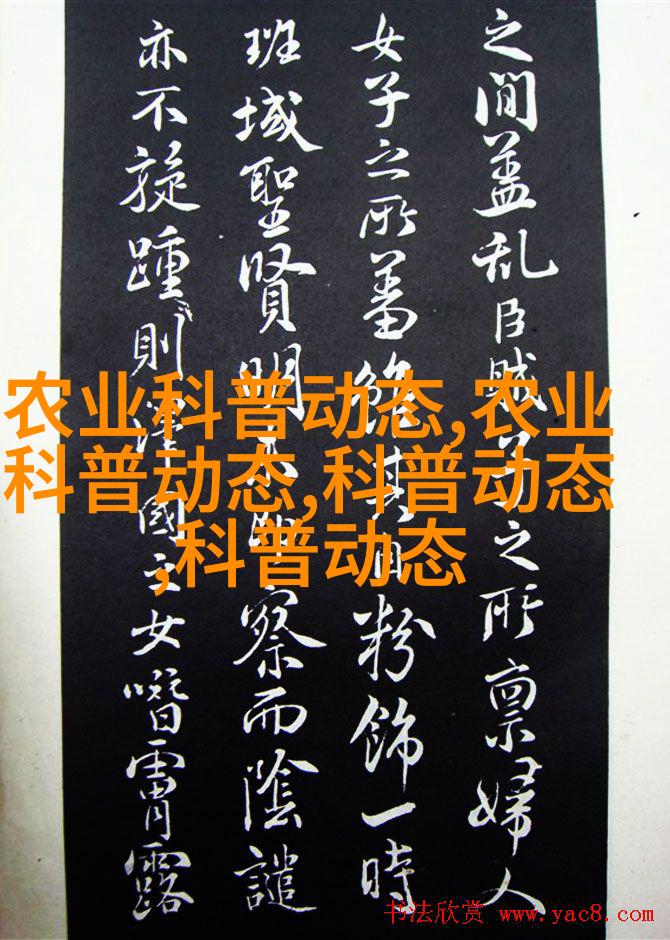 之間盖乱臣賊子之所禀婦人
女子之所蓄其目粉飾一時
班域聖賢明不察而陰譴
亦不旋踵則國之女噆霄露
农业科普动态,农业
科普动态,科普动态
,科普动态
书法欣赏 www.yac8.com